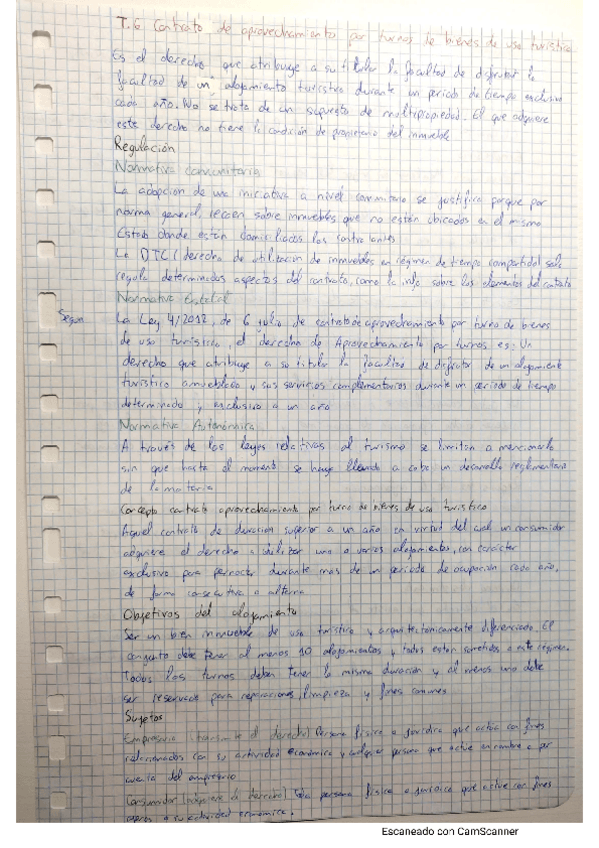 T.6 Contrato de aprovechamiento por turnos de bienes de uso turístico
Es el derecho que atribuye a su titular la facultad de disfrutar la
facultad de un alojamiento turístico durante un periodo de tiempo exclusivo
cada año. No se trata de un supuesto de multipropiedad. El que adquiere
este derecho no tiene la condición de propietario del inmueble
Regulación
Normativa comunitaria
La adopción de una iniciativa a nivel comunitario se justifica porque por
norma general, recaen sobre inmuebles que no están ubicados en el mismo
Estado donde están domiciliados los contratantes
La DTC (derecho de utilización de inmuebles en régimen de tiempo compartido) solo
regula determinados aspectos del contrato, como la info sobre los elementos del contrato
Normativa Estatal
Según La Ley 4/2012, de 6 julio de contrato de aprovechamiento por turno de bienes
de uso turístico, el derecho de Aprovechamiento por turnos es: Un
derecho que atribuye a su titular la facultad de disfrutar de un alojamiento
turístico amueblado y sus servicios complementarios durante un periodo de tiempo
determinado y exclusivo a un año
Normativa Autonómica
A través de las leyes relativas al turismo se limitan a mencionarlo
sin que hasta el momento se haya llevado a cabo un desarrollo reglamentario
de la materia
Concepto contrato aprovechamiento por turno de bienes de uso turístico
Aquel contrato de duración superior a un año en virtud del cual un consumidor
adquiere el derecho a utilizar uno o varios alojamientos, con carácter
exclusivo para pernoctar durante más de un periodo de ocupación cada año,
de forma consecutiva o alterna
Objetivos del alojamiento
Ser un bien inmueble de uso turístico y arquitectónicamente diferenciado. El
conjunto debe tener al menos 10 alojamientos y todos están sometidos a este régimen.
Todos los turnos deben tener la misma duración y al menos uno debe
ser reservado para reparaciones, limpieza y fines comunes
Sujetos
Empresario (transmite el derecho) Persona física o jurídica que actúa con fines
relacionados con su actividad económica y cualquier persona que actúe en nombre o por
cuenta del empresario
Consumidor (adquiere el derecho) Toda persona física o jurídica que actúe con fines
ajenos a su actividad económica.
Escaneado con CamScanner